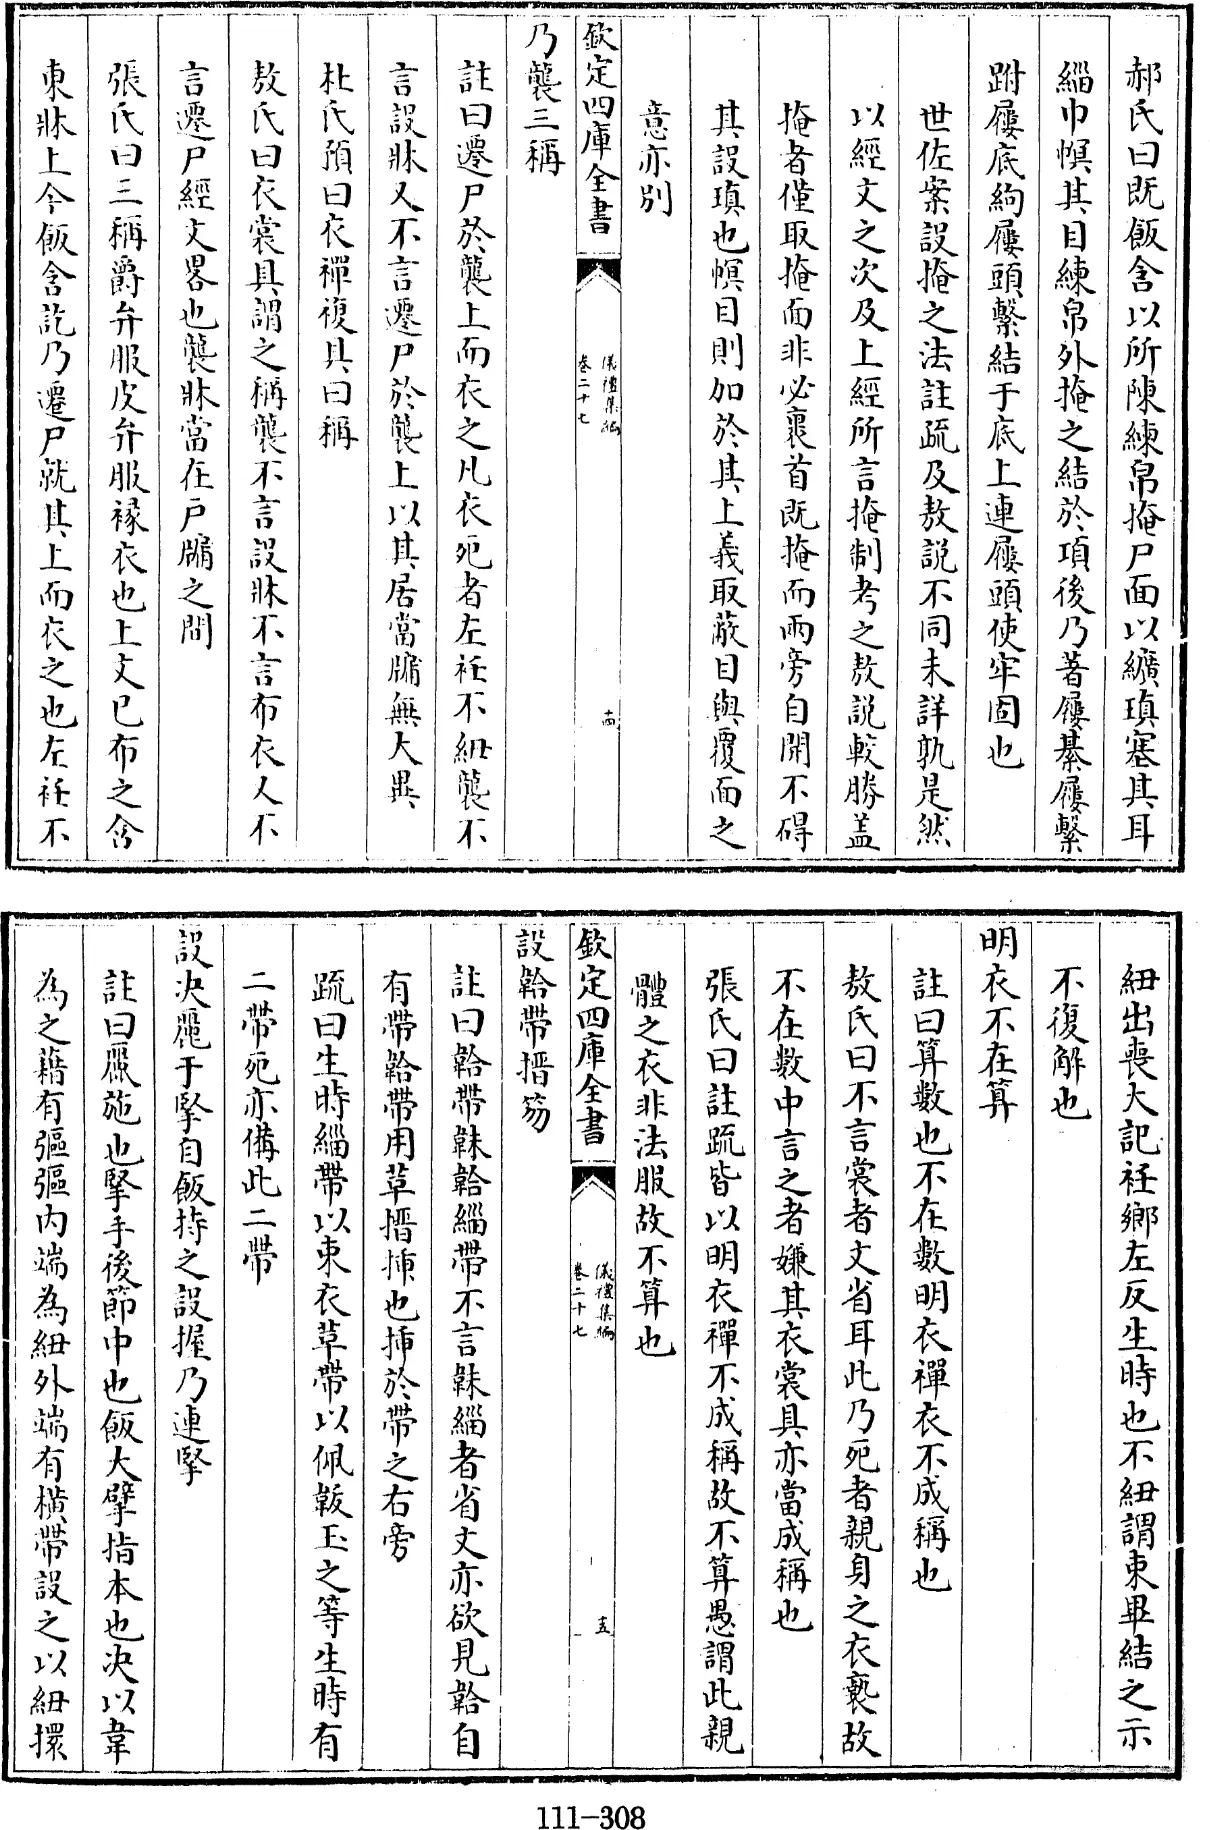 郝氏曰既飯含以所陳練帛掩尸面以纊瑱塞其耳
緇巾幎其目練帛外掩之結於項後乃著屨綦屨繫
跗屨底絇屨頭繫結于底上連屨頭使牢固也
世佐案設掩之法註疏及敖說不同未詳孰是然
以經文之次及上經所言掩制考之敖說較勝盖
掩者僅取掩面而非必裹首既掩而兩旁自開不碍
其設瑱也幎目則加於其上義取蔽目與覆面之
意亦别
欽定四庫全書
儀禮集編
卷二十七
十四
乃襲三稱
註曰遷尸於襲上而衣之凡衣死者左衽不紐襲不
言設牀又不言遷尸於襲上以其居當牖無大異
杜氏預曰衣禪複具曰稱
敖氏曰衣裳具謂之稱襲不言設牀不言布衣人不
言遷尸經文畧也襲牀當在戸牖之間
張氏曰三稱爵弁服皮弁服褖衣也上文已布之含
東牀上今飯含訖乃遷尸就其上而衣之也左衽不
紐出喪大記衽鄉左反生時也不紐謂束畢結之示
不復解也
明衣不在算
註曰算數也不在數明衣禪衣不成稱也
敖氏曰不言裳者文省耳此乃死者親身之衣褻故
不在數中言之者嫌其衣裳具亦當成稱也
張氏曰註疏皆以明衣禪不成稱故不算愚謂此親
體之衣非法服故不算也
欽定四庫全書
儀禮集編
卷二十七
十五
設韐帶搢笏
註曰韐帶韎韐緇帶不言韎緇者省文亦欲見韐自
有帶韐帶用革搢揷也揷於帶之右旁
疏曰生時緇帶以束衣革帶以佩韍玉之等生時有
二帶死亦備此二帶
設决麗于掔自飯持之設握乃連掔
註曰麗施也掔手後節中也飯大擘指本也决以韋
為之藉有彄彄内端為紐外端有橫帶設之以紐擐
111-308